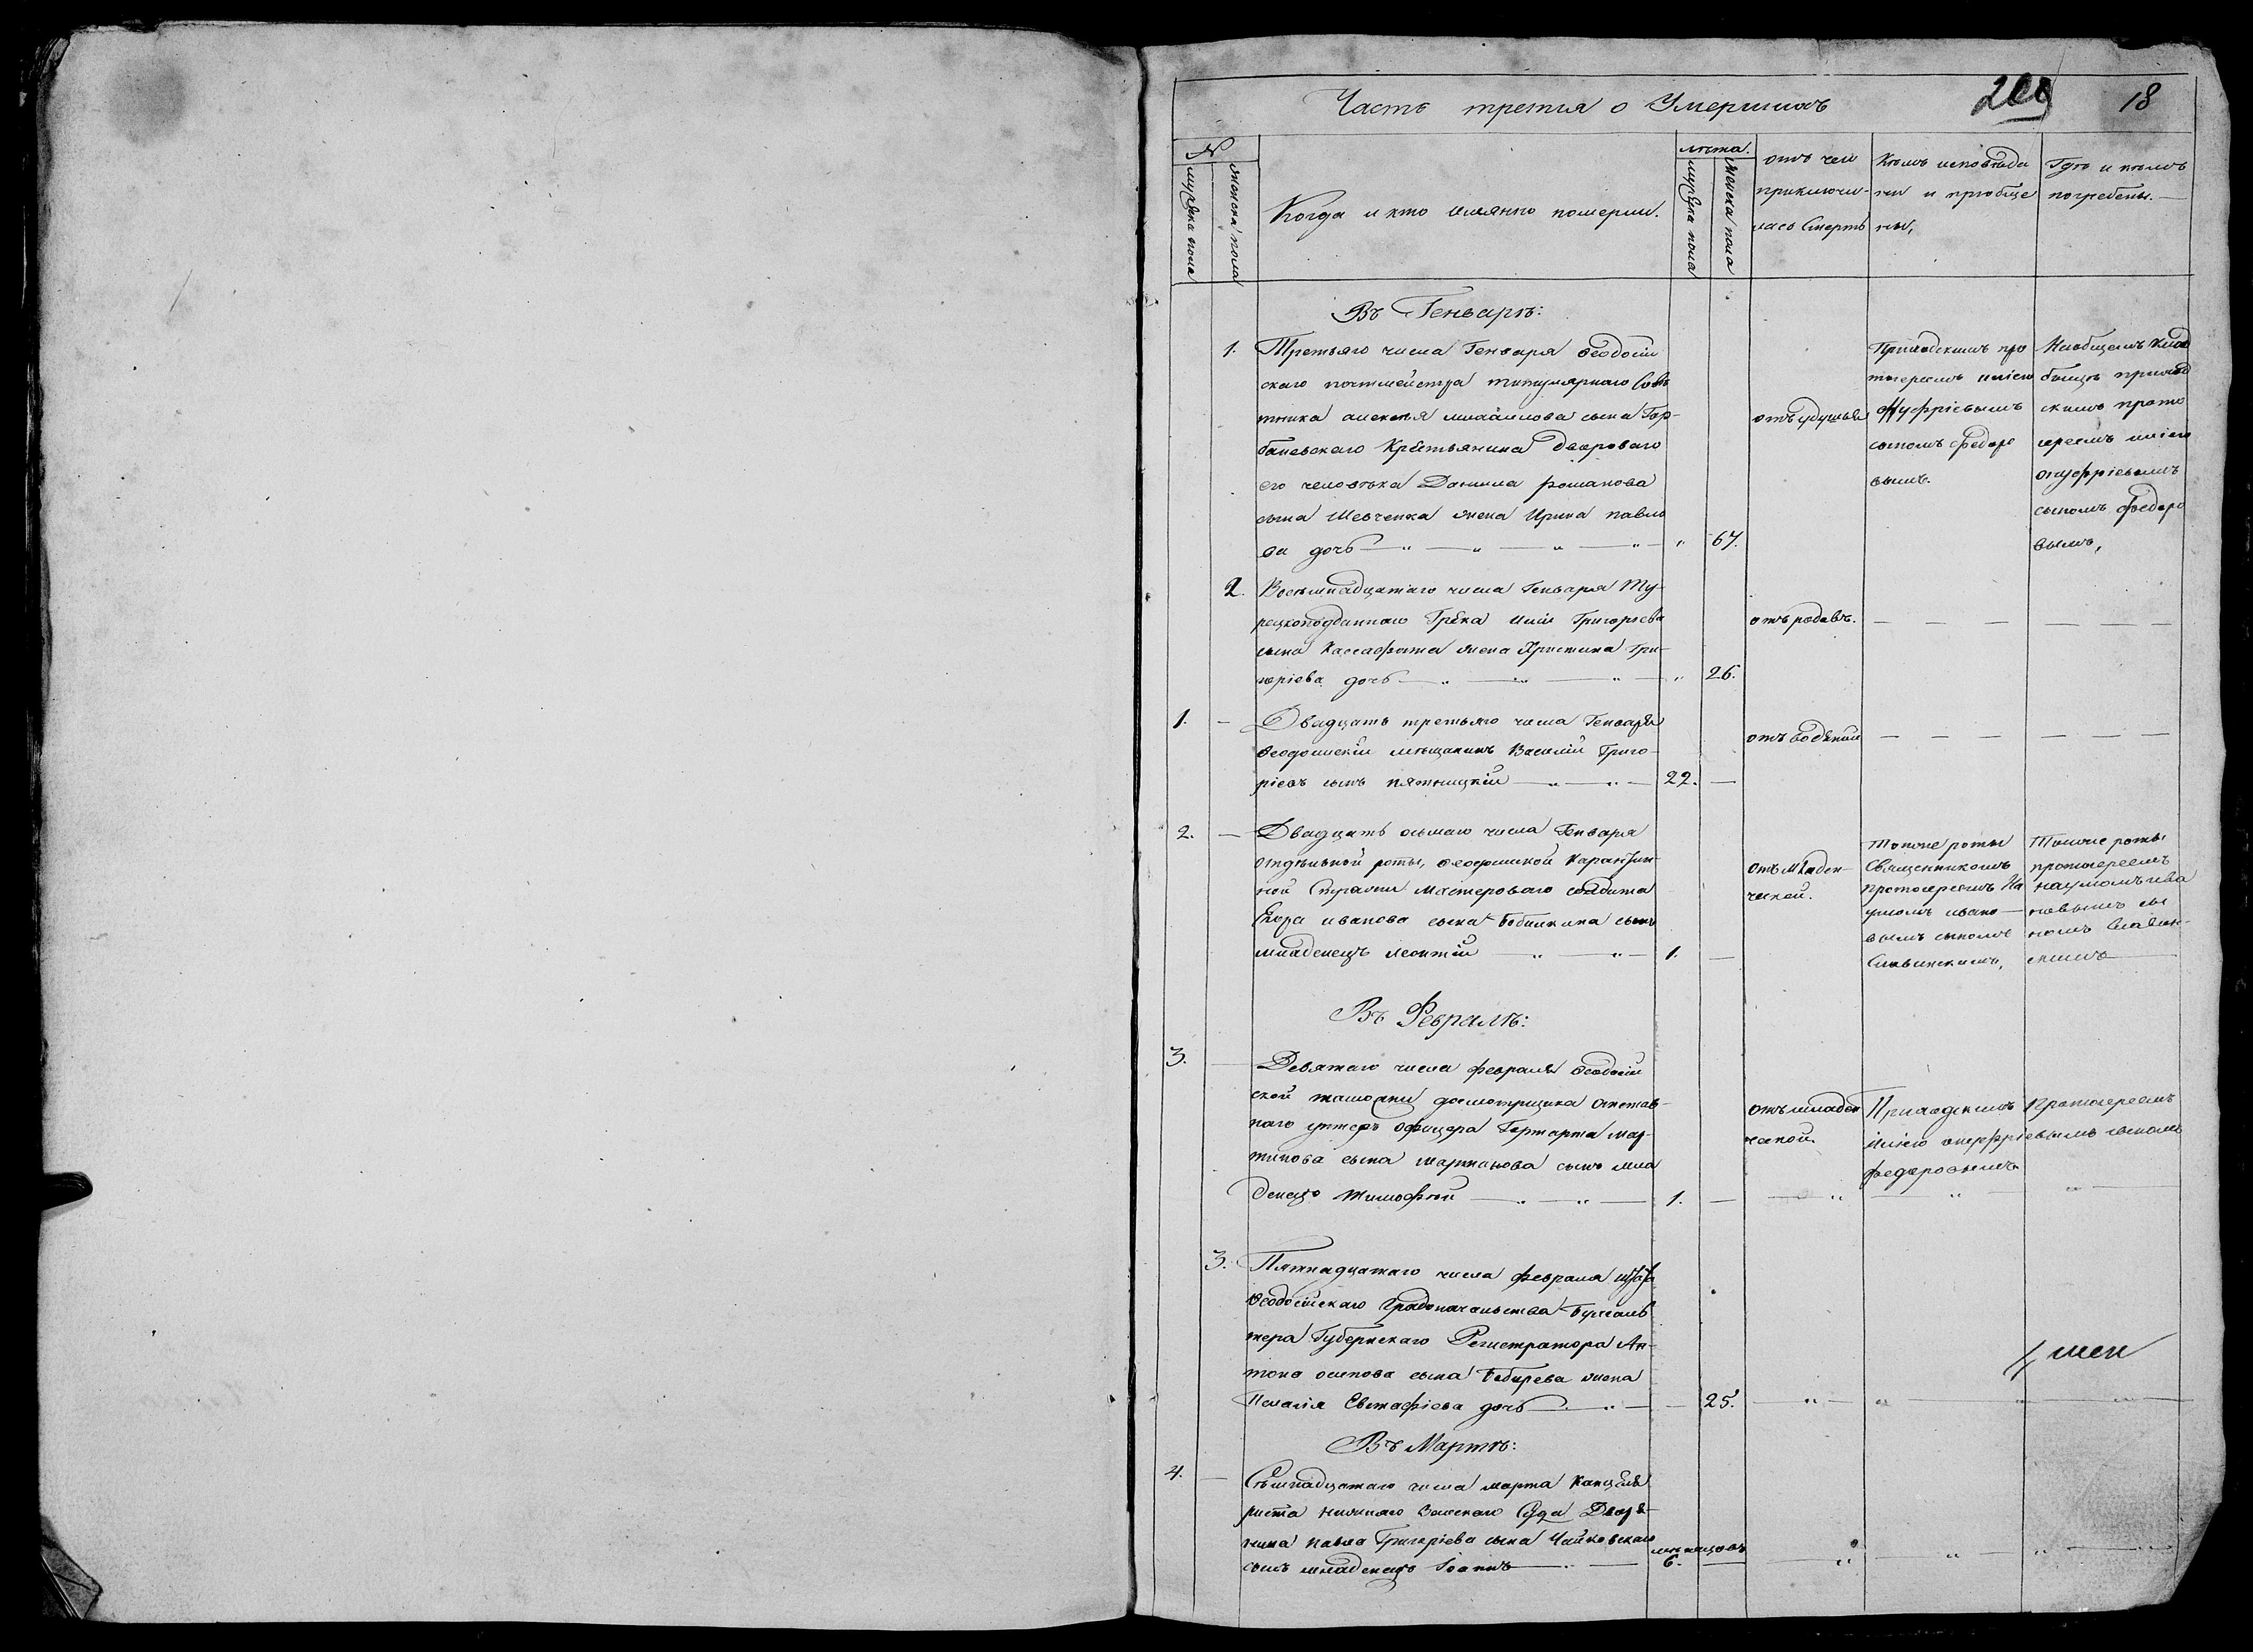 Часть третья о Умершихъ
18
№
мужеска пола
женска пола
Когда и кто имянно померли.
лѣта.
мужеска пола
женска пола
отъ чего
приключи-
лась Смерть
Кѣмъ исповѣда
ны и приобще
ны,
Гдѣ и кѣмъ
погребены.
Въ Генварѣ:
1. Третьяго числа Генваря Ѳеодосій
скаго почтмейстра титулярнаго Совѣ
тника алексѣя михайлова сына Гор-
баневскаго Крестьянина двороваго
его человѣка Данила романова
сына Шевченка жена Ирина павло
ва дочь 67.
отъ удушья
Приходскимъ про
тоіереемъ иліею
Ануфріевымъ
сыномъ федоро
вымъ.
На общемъ клад
бищѣ приход
скимъ прото
іереемъ иліею
онуфріевымъ
сыномъ федоро
вымъ,
2. Восемнадцатаго числа Генваря Ту-
рецкоподданнаго Грека Иліи Григорьева
сына Кассафота жена Христина Гри-
горіева дочь 26.
отъ родовъ.
1. Двадцать третьяго числа Генваря
Ѳеодосійскій мѣщанинъ Василій Григо-
ріевъ сынъ пятницкій 22.
отъ водяной
2. Двадцать осьмаго числа Генваря
отдѣльной роты, Ѳеодосійской Карантин-
ной Стражи мастероваго солдата
Егора иванова сына Бобылкина сынъ
младенецъ леонтій 1.
отъ младен-
ческой.
Тойже роты
Священникомъ
протоіереемъ На
умомъ ивано-
вымъ сыномъ
Славинскимъ,
Тойже роты
протоіереемъ
наумомъ ива
новымъ сы
номъ Славин-
скимъ
Въ Февралѣ:
3. Девятаго числа февраля Ѳеодосій
ской таможни досмотрщика отстав-
наго унтеръ офицера мар-
тинова сына мартинова сынъ мла
денецъ тимофей 1.
отъ младен
ческой.
Приходскимъ Протоіереемъ
иліею онуфріевымъ сыномъ
федоровымъ
3. Пятнадцатаго числа февраля
Ѳеодосійскаго Градоначальства Бухгаль
тера Губернскаго Регистратора Ан-
тона осипова сына Бобырева жена
Пелагія Евстафіева дочь 25.
Въ Мартѣ:
4. Семнадцатаго числа марта Канцеля
риста нижняго Земскаго Суда Дворя-
нина павла Григоріева сына Чайковскаго
сынъ младенецъ Іоаннъ 6. мѣсяцовъ